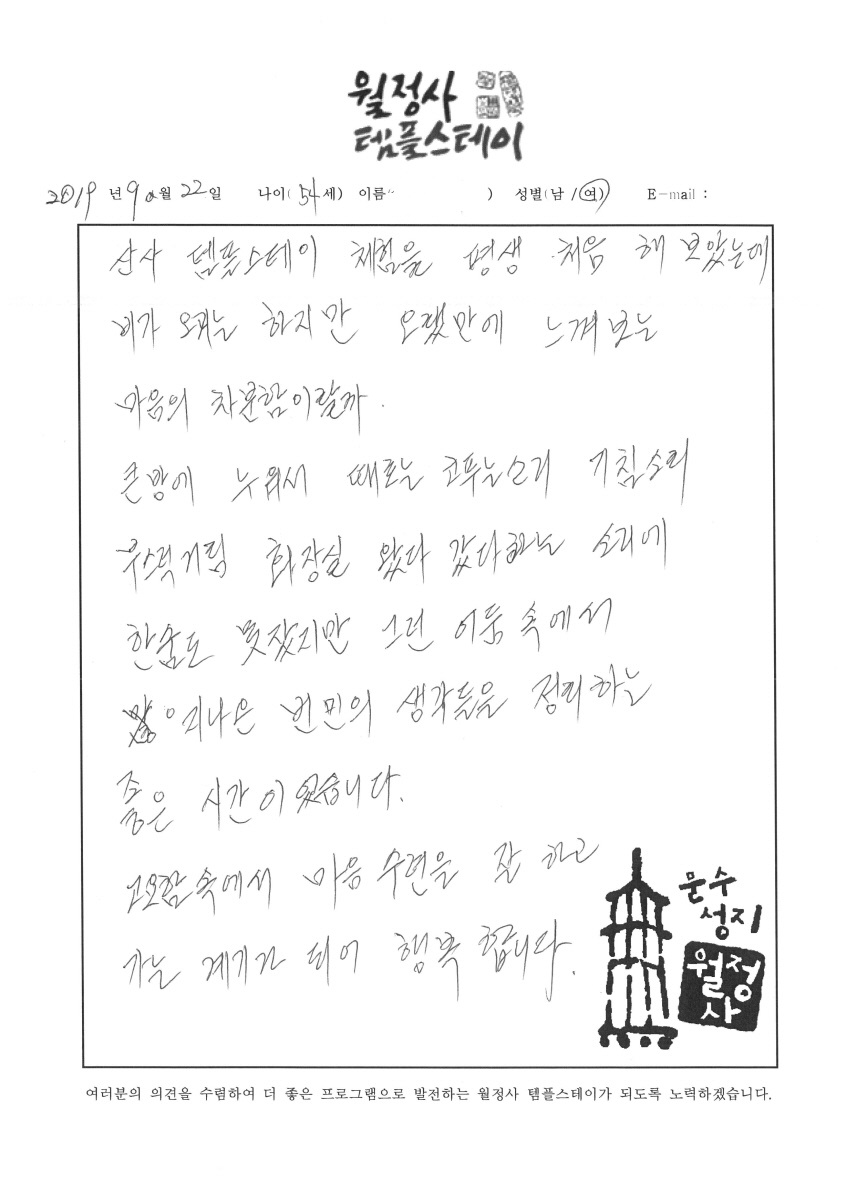 월정사
템플스테이
2019 년 9 월 22 일 나이( 54 세) 이름 ) 성별(남 / 여) E-mail :
산사 템플스테이 체험을 평생 처음 해 보았는데
비가 오기는 하지만 오랬만에 느껴보는
마음의 차분함이랄까.
큰방에 누워서 때로는 코푸는소리 기침소리
부스럭거림 화장실 왔다 갔다하는 소리에
한숨도 못잤지만 그런 어둠 속에서
지나온 번민의 생각들을 정리하는
좋은 시간이 였습니다.
고요함속에서 마음 수련을 잘 하고
가는 계기가 되어 행복 합니다.
문수
성지
월정
사
여러분의 의견을 수렴하여 더 좋은 프로그램으로 발전하는 월정사 템플스테이가 되도록 노력하겠습니다.